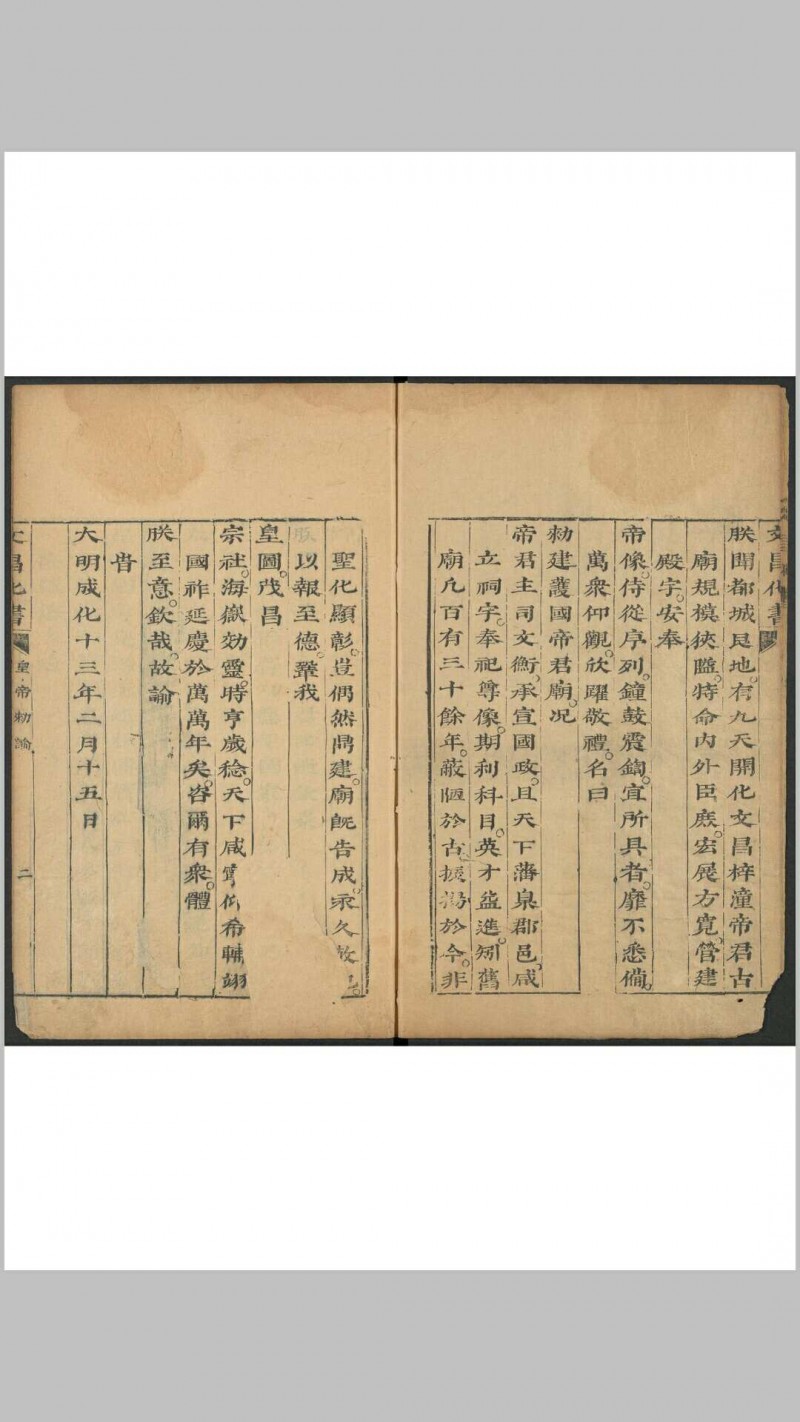 文昌化書
朕聞都城艮地。有九天開化文昌梓潼帝君古
廟規模狹隘。特命內外臣庶。宏展方寬。管建
殿宇。安奉
帝像。侍從序列。鐘鼓震鏑。宜所具者。靡不悉備。
萬衆仰觀。欣躍敬禮。名曰
勑建護國帝君廟。况
帝君主司文衡。承宣國政。且天下藩臬郡邑。咸
立祠宇。奉祀尊像。期利科目。英才益進。矧舊
廟凡百有三十餘年。蔽陋於古。振揚於今。非
聖化顯彰。豈偶然鼎建。廟旣告成。永久
以報至德。彝我
皇圖。茂昌
宗社。海嶽効靈。時亨歲稔。天下咸寧 希 翊
國祚延慶於萬萬年矣。咨爾有衆。體
朕至意。欽哉。故諭
旹
大明成化十三年二月十五日
文昌化書 皇帝勑諭 二